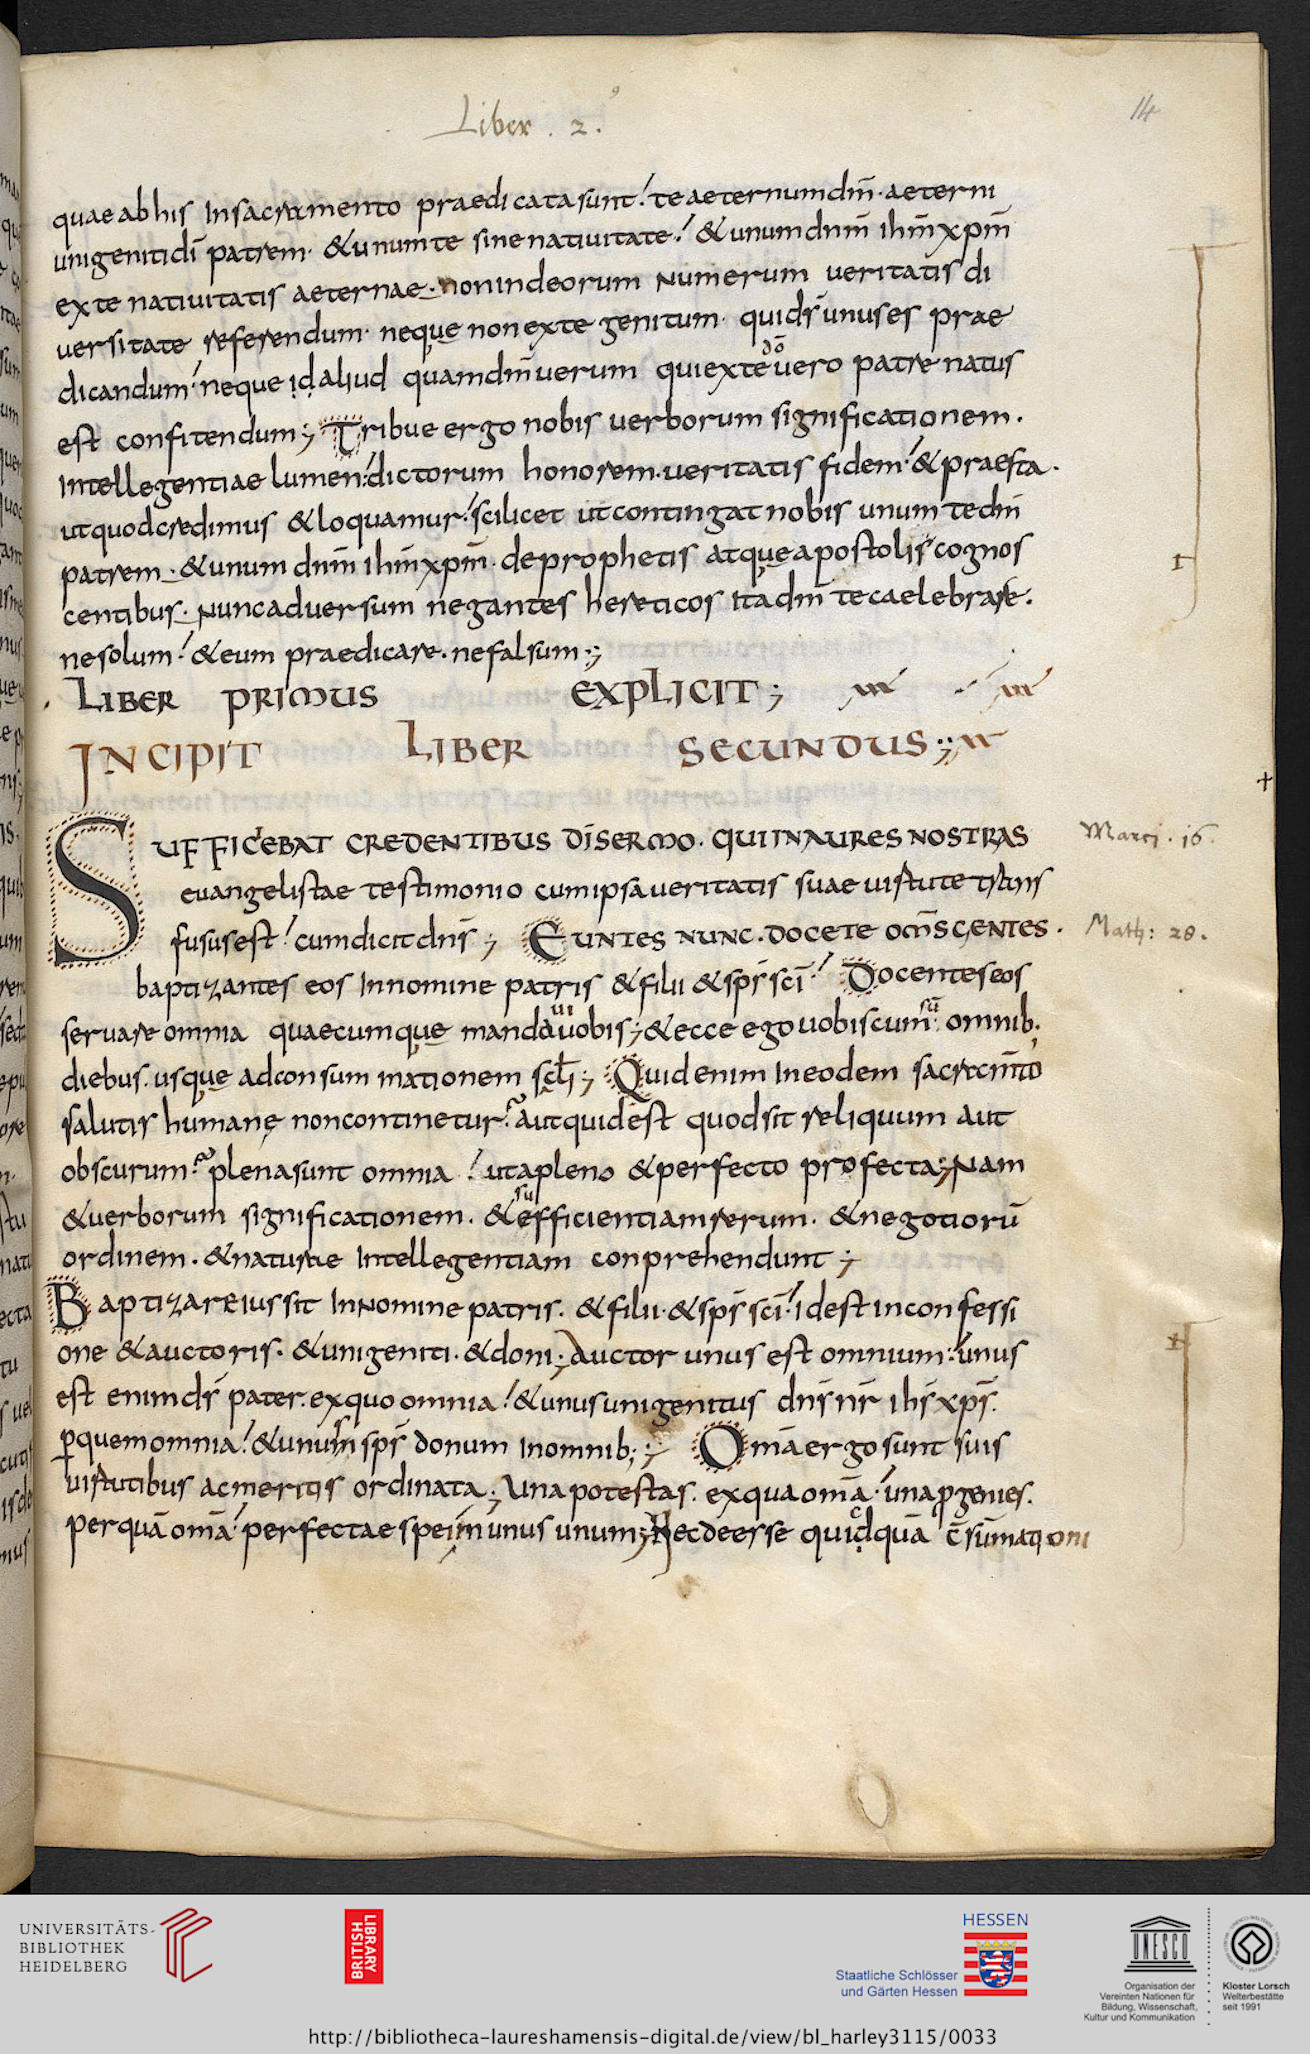 Liber . 2.
14
quae ab his In sacramento praedicata sunt. te aeternum dm̄. aeterni
unigeniti di patrem. & unum te sine nativitate. & unum dnm̄ ihm̄ xpm̄
ex te nativitatis aeternae. non in deorum numerum veritatis di
versitate referendum. neque non ex te genitum. qui ds̄ unus es prae
dicandum. neque id aliud quam dm̄ verum qui ex te dō vero patre natus
est confitendum; Tribue ergo nobis verborum significationem.
Intellegentiae lumen. dictorum honorem. veritatis fidem. & praesta.
ut quod credimus & loquamur. scilicet ut contingat nobis unum te dm̄
patrem. & unum dnm̄ ihm̄ xpm̄. de prophetis atque apostolis cognos
centibus. Nunc adversum negantes hereticos Ita dm̄ te caelebrare.
ne solum. & eum praedicare. ne falsum;
LIBER PRIMUS EXPLICIT;
INCIPIT LIBER SECUNDUS;
SUFFICEBAT CREDENTIBUS DĪ SERMO. QUI IN AURES NOSTRAS
Marci . 16.
evangelistae testimonio cum ipsa veritatis suae virtute trans
fusus est. cum dicit dns̄; EUNTES NUNC. DOCETE OMS̄ GENTES.
Math: 28.
baptizantes eos In nomine patris & filii & sps̄ scī. Docentes eos
servare omnia quaecumque mandavi vobis; & ecce ego vobiscum sū omnib;
diebus. usque ad consummationem scl̄i; Quid enim In eodem sacramn̄to
salutis humanę non continetur. aut quid est quod sit reliquum aut
obscurum. plena sunt omnia. ut a pleno & perfecto profecta; Nam
& verborum significationem. & efficientiam rerum. & negotiorū
su
ordinem. & naturae Intellegentiam conprehendunt;
Baptizare iussit In Nomine patris. & filii. & sps̄ scī. id est in confessi
one & auctoris. & unigeniti. & doni; Auctor unus est omnium. unus
est enim ds̄ pater. ex quo omnia. & unus unigenitus dns̄ nr̄ ihs̄ xps̄.
ꝑ quem omnia. & unus sps̄ donum In omnib; Omā ergo sunt suis
virtutibus ac meritis ordinata; Una potestas. ex qua omā. una ꝓgenies.
per quā omā. perfectae spei munus unum; Nec deesse quicquā c̄sūmationi
UNIVERSITÄTS-
BIBLIOTHEK
HEIDELBERG
BRITISH
LIBRARY
HESSEN
Staatliche Schlösser
und Gärten Hessen
UNESCO
Organisation der
Vereinten Nationen für
Bildung, Wissenschaft,
Kultur und Kommunikation
Kloster Lorsch
Welterbestätte
seit 1991
http://bibliotheca-laureshamensis-digital.de/view/bl_harley3115/0033